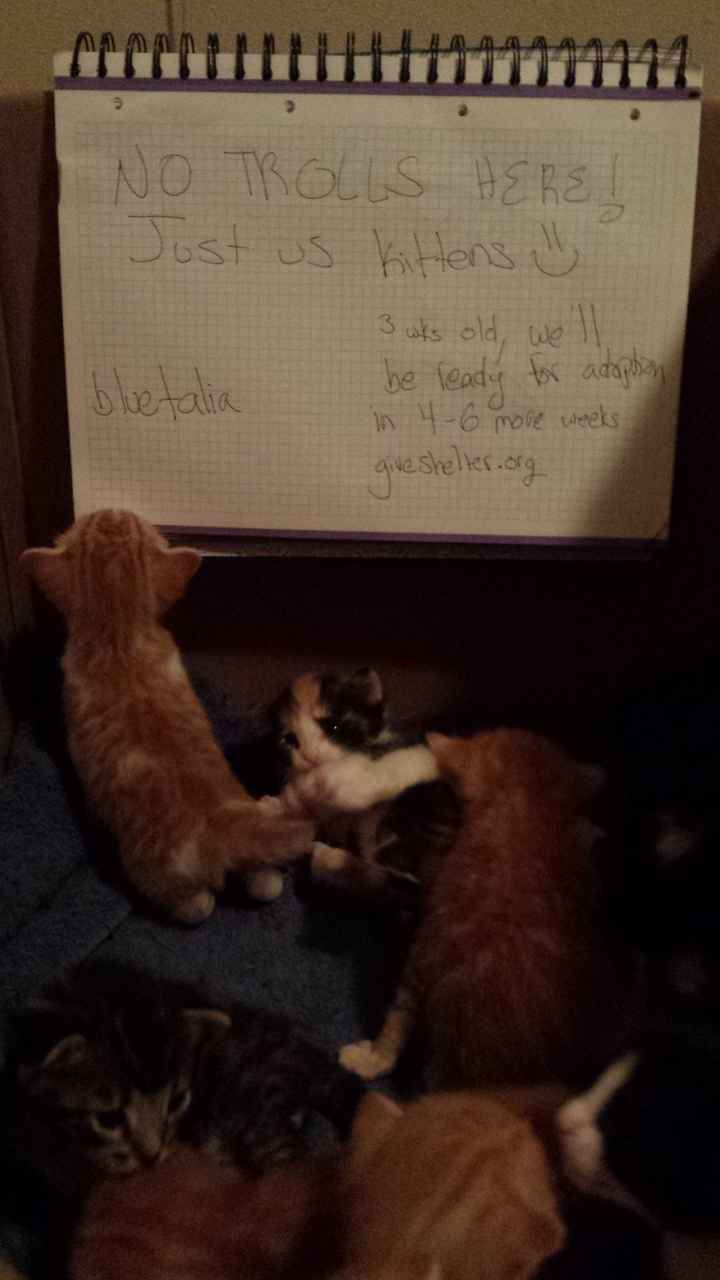 NO TROLLS HERE!
Just us kittens
3 wks old, we'll
be ready for adoption
in 4-6 more weeks
giveshelter.org
bluetalia